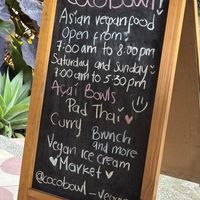 Cocobowl!
Asian vegan food
Open from:
7:00 am to 8:00 pm
Saturday and Sunday
7:00 am to 5:30 pm
Açaí Bowls
Pad Thai
Curry Brunch
and more
Vegan ice cream
Market
@cocobowl_vegan